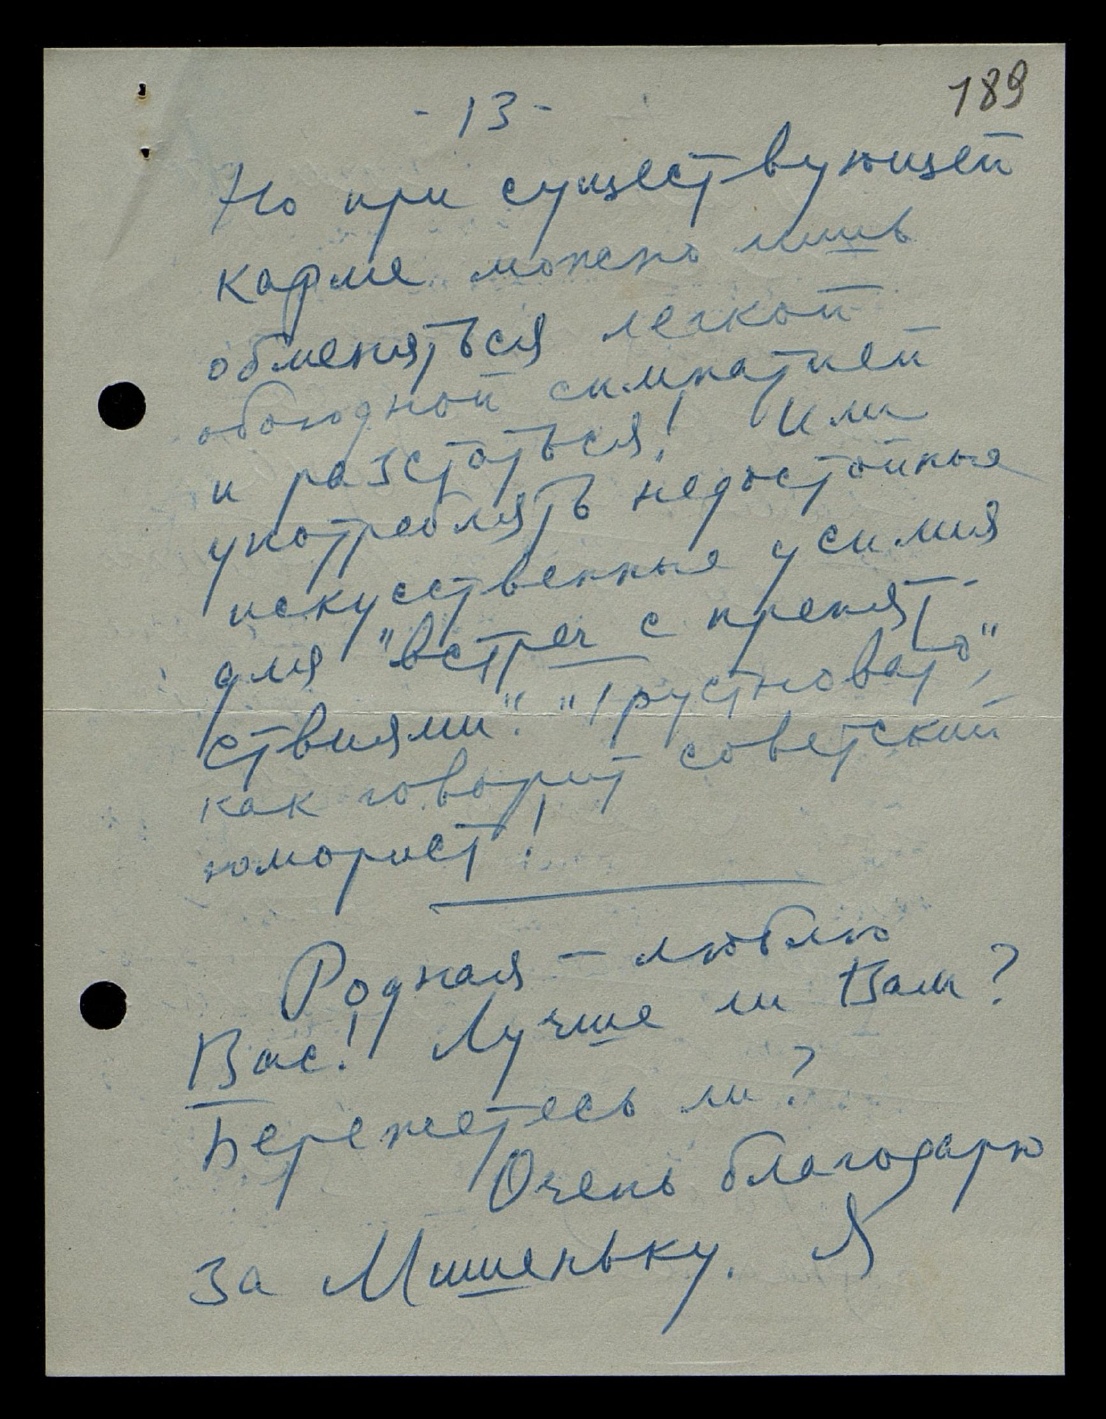 189
- 13 -
Но при существующей
карме можно лишь
обменяться легкой
обоюдной симпатией
и разстаться! Или
употреблять недостойные
искусственные усилия
для "встреч с препят-
ствиями". "Грустновато",
как говорит советский
юморист!
Родная – люблю
Вас! Лучше ли Вам?
Бережетесь ли?
Очень благодарю
за Мишеньку. Я